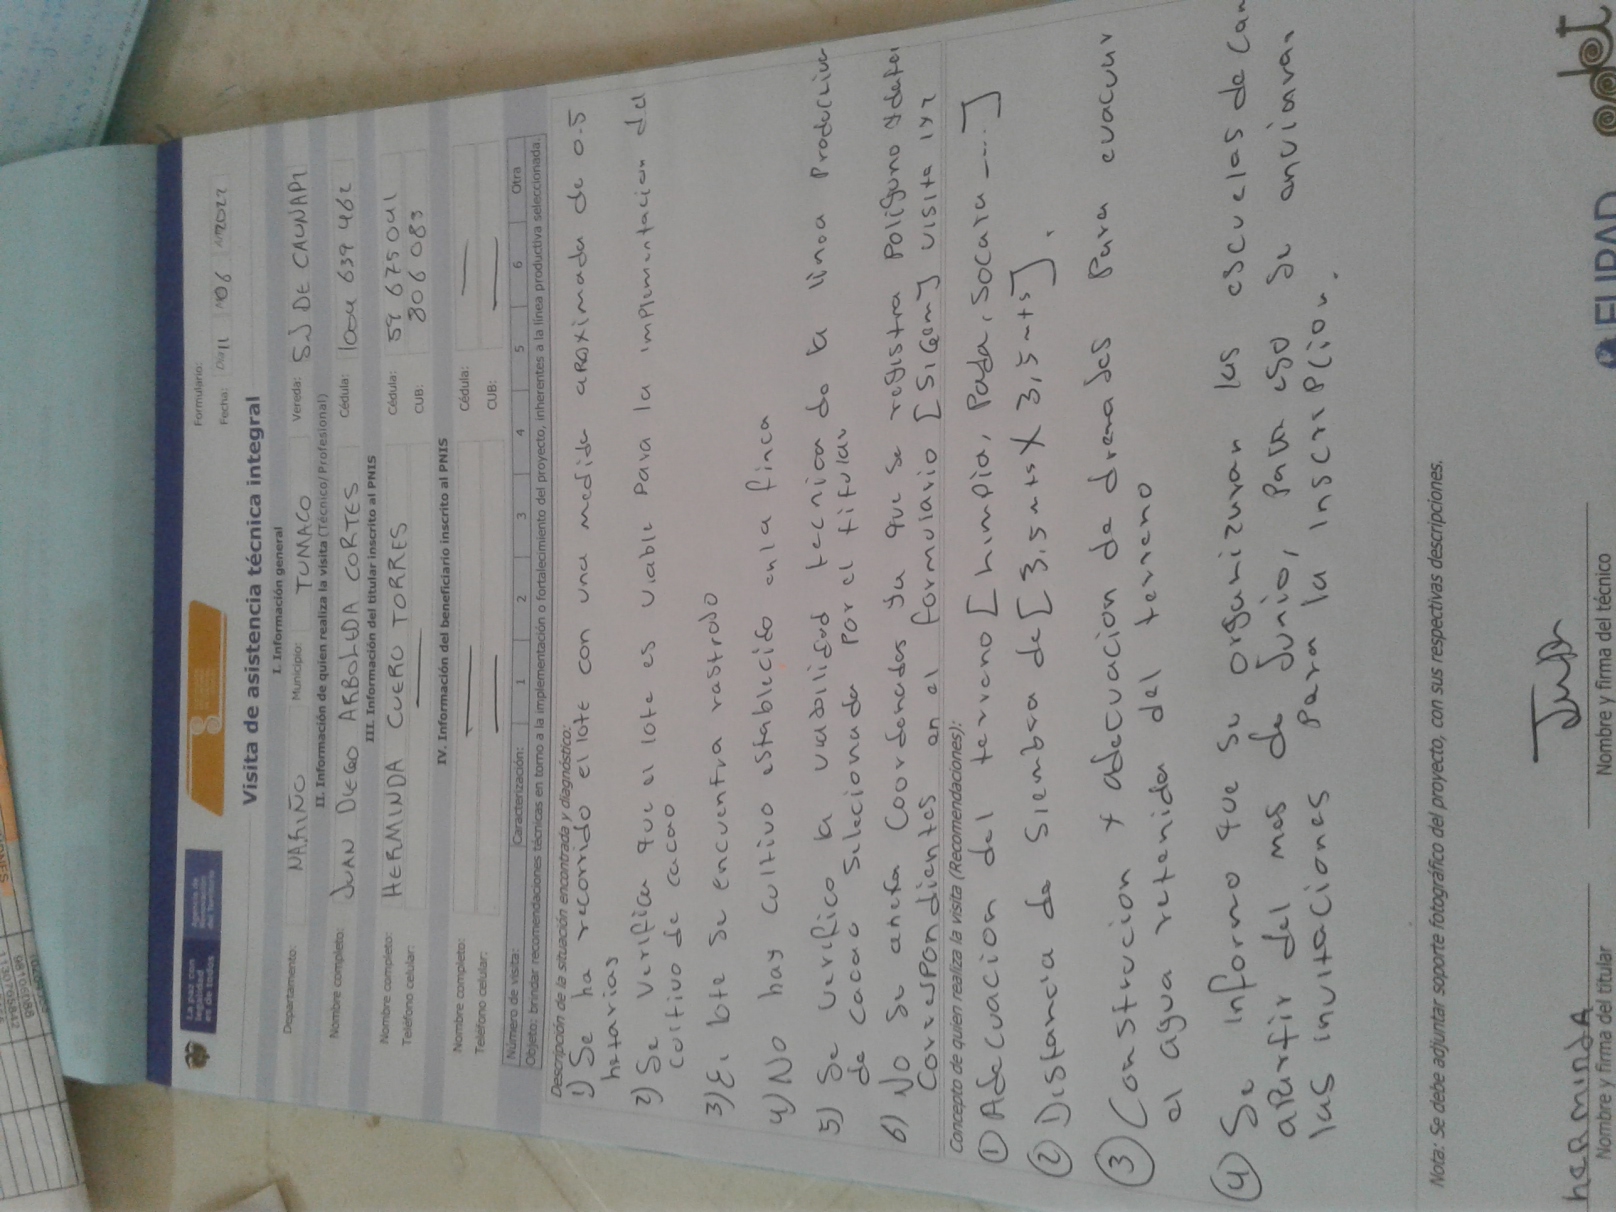 La paz con
legalidad
es de todos
Agencia de
Renovación
del Territorio
Formulario:
Fecha: Dia 11 M 06 A 2022
Visita de asistencia técnica integral
I. Información general
Departamento: NARIÑO Municipio: TUMACO Vereda: S.J DE CAUNAPI
II. Información de quien realiza la visita (Técnico/Profesional)
Nombre completo: JUAN DIEGO ARBOLEDA CORTES Cédula: 1004 639 462
III. Información del titular inscrito al PNIS
Nombre completo: HERMINDA CUERO TORRES Cédula: 59 675 041
Teléfono celular: — CUB: 806 083
IV. Información del beneficiario inscrito al PNIS
Nombre completo: — Cédula: —
Teléfono celular: — CUB: —
Número de visita: Caracterización: 1 2 3 4 5 6 Otra
Objeto: brindar recomendaciones técnicas en torno a la implementación o fortalecimiento del proyecto, inherentes a la línea productiva seleccionada.
Descripción de la situación encontrada y diagnóstico:
1) Se ha recorrido el lote con una medida aproximada de 0.5
hetarias
2) Se verifica que el lote es viable para la implementacion del
cultivo de cacao
3) El lote se encuentra rastrodo
4) No hay cultivo establecido en la finca
5) Se verifico la viabilidad tecnica de la linea productiva
de cacao selecionada por el titular
6) No se aneta coordenadas ya que se registra poligono y datos
correspondientes en el formulario [SIGem] visita 1x2
Concepto de quien realiza la visita (Recomendaciones):
① Adecuacion del terreno [Limpia, Poda, Socara ----]
② Distancia de siembra de [3,5 mts X 3,5 mts].
③ Construcion y adecuacion de drenades para evacuar
el agua retenida del terreno
④ Se informo que se organizaran las escuelas de cam
apartir del mes de Junio, para eso se enviaran
las invitaciones para la inscripcion.
Nota: Se debe adjuntar soporte fotográfico del proyecto, con sus respectivas descripciones.
herminda
Nombre y firma del titular
Nombre y firma del técnico